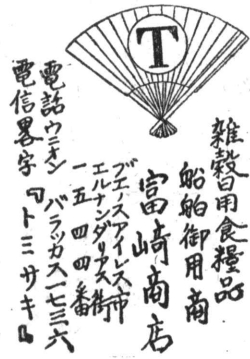 T
雑穀日用食糧品
船舶御用商
富崎商店
ブエノスアイレス市
エルナンダリアス街
一五四四番
電話ウニオン
バラッカス一七三六
電信畧字『トミサキ』